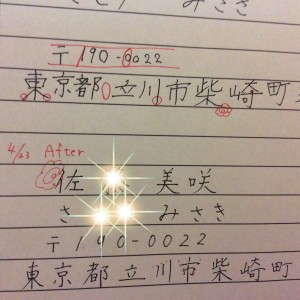 みさき
〒190-0022
東京都立川市柴崎町
4/23 After
佐 美咲
さ みさき
〒190-0022
東京都立川市柴崎町